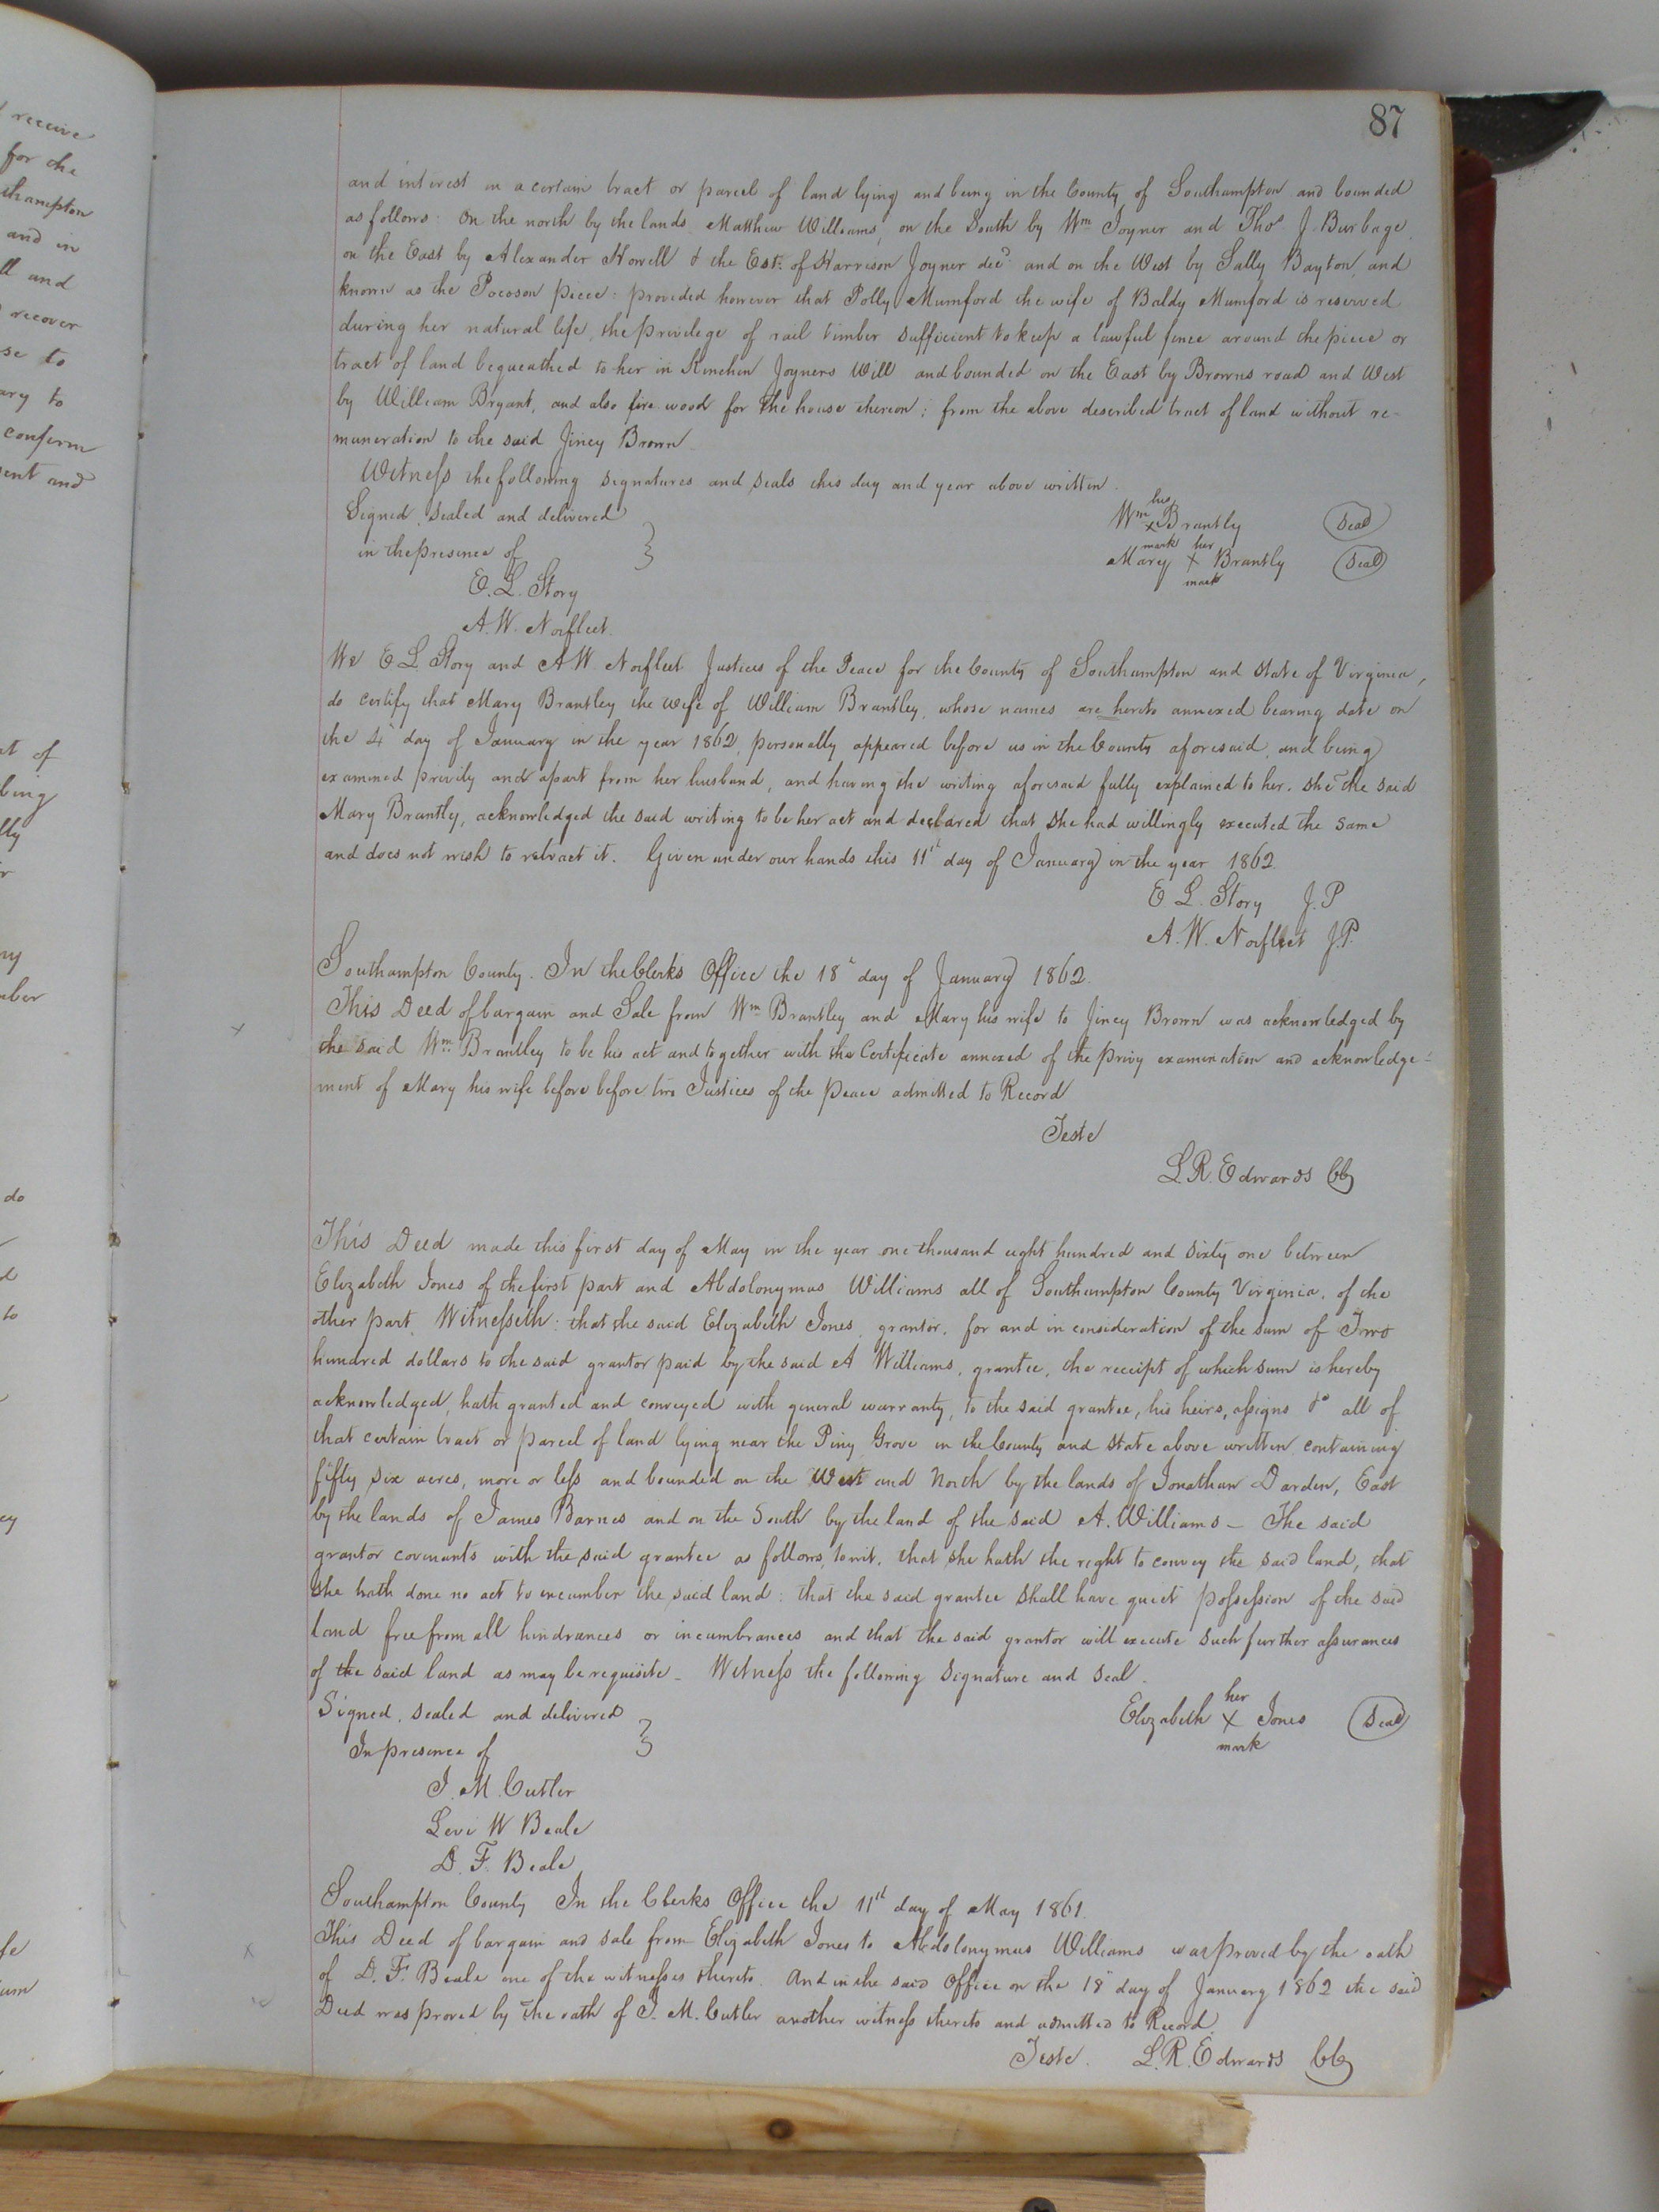 receive
for the
Southampton
and in
ll and
recover
se to
ary to
confirm
ent and
87
and interest in a certain tract or parcel of land lying and being in the County of Southampton and bounded
as follows: On the north by the lands Matthew Williams, on the South by Wm Joyner and Thos J. Burbage
on the East by Alexander Howell & the Est. of Harrison Joyner decd and on the West by Sally Bayton, and
known as the Pocoson piece: provided however that Polly Mumford the wife of Baldy Mumford is reserved
during her natural life, the privilege of rail timber sufficient to keep a lawful fence around the piece or
tract of land bequeathed to her in Kinchen Joyners Will and bounded on the East by Browns road and West
by William Bryant, and also fire wood for the house thereon; from the above described tract of land without re-
muneration to the said Jincy Brown
Witness the following signatures and seals this day and year above written.
Signed, sealed and delivered
in the presence of
E. L. Story
A. W. Norfleet.
his
Wm x Brantly Seal
mark her
Mary x Brantly Seal
mark
We E L Story and A W. Norfleet Justices of the Peace for the County of Southampton and State of Virginia,
do certify that Mary Brantley the wife of William Brantley, whose names are hereto annexed bearing date on
the 4 day of January in the year 1862, personally appeared before us in the County aforesaid, and being
examined privily and apart from her husband, and having the writing aforesaid fully explained to her, she the said
Mary Brantly, acknowledged the said writing to be her act and declared that she had willingly executed the same
and does not wish to retract it. Given under our hands this 11th day of January in the year 1862.
E L. Story J.P
A. W. Norfleet J.P.
Southampton County. In the Clerks Office the 18th day of January 1862.
This Deed of bargain and Sale from Wm Brantley and Mary his wife to Jincy Brown was acknowledged by
x
the said Wm Brantley to be his act and together with the Certificate annexed of the privy examination and acknowledge-
ment of Mary his wife before before two Justices of the peace admitted to Record
Teste
L. R. Edwards CC
This Deed made this first day of May in the year one thousand eight hundred and sixty one between
Elizabeth Jones of the first part and Abdolonymus Williams all of Southampton County Virginia, of the
other part, Witnesseth: that the said Elizabeth Jones, grantor, for and in consideration of the sum of Two
hundred dollars to the said grantor paid by the said A Williams, grantee, the receipt of which sum is hereby
acknowledged, hath granted and conveyed with general warranty, to the said grantee, his heirs, assigns &c all of
that certain tract or parcel of land lying near the Piny Grove in the County and State above written, containing
fifty six acres, more or less and bounded on the West and North by the lands of Jonathan Darden, East
by the lands of James Barnes and on the South by the land of the said A. Williams – The said
grantor covenants with the said grantee as follows, towit, that she hath the right to convey the said land, that
she hath done no act to incumber the said land: that the said grantee shall have quiet possession of the said
land free from all hindrances or incumbrances and that the said grantor will execute such further assurances
of the said land as may be requisite – Witness the following Signature and Seal.
Signed, sealed and delivered
In presence of
J. M. Cutler
Levi W Beale
D. F. Beale
her
Elizabeth x Jones Seal
mark
Southampton County In the Clerks Office the 11th day of May 1861.
This Deed of bargain and sale from Elizabeth Jones to Abdolonymus Williams was proved by the oath
x
of D. F. Beale one of the witnesses thereto. And in the said Office on the 18" day of January 1862 the said
Deed was proved by the oath of J. M. Cutler another witness thereto and admitted to Record.
Teste. L. R. Edwards CC